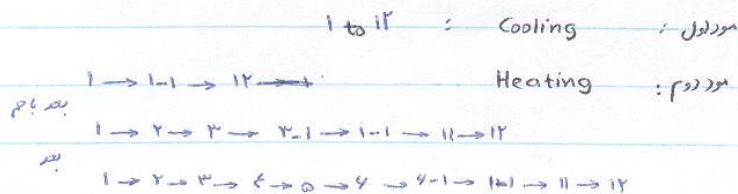 مود اول : Cooling : ۱ to ۱۲
مود دوم : Heating ۱ → ۱-۱ → ۱۲
بعد با هم
۱ → ۲ → ۳ → ۳-۱ → ۱-۱ → ۱۱ → ۱۲
بعد
۱ → ۲ → ۳ → ۴ → ۵ → ۶ → ۶-۱ → ۱-۱ → ۱۱ → ۱۲